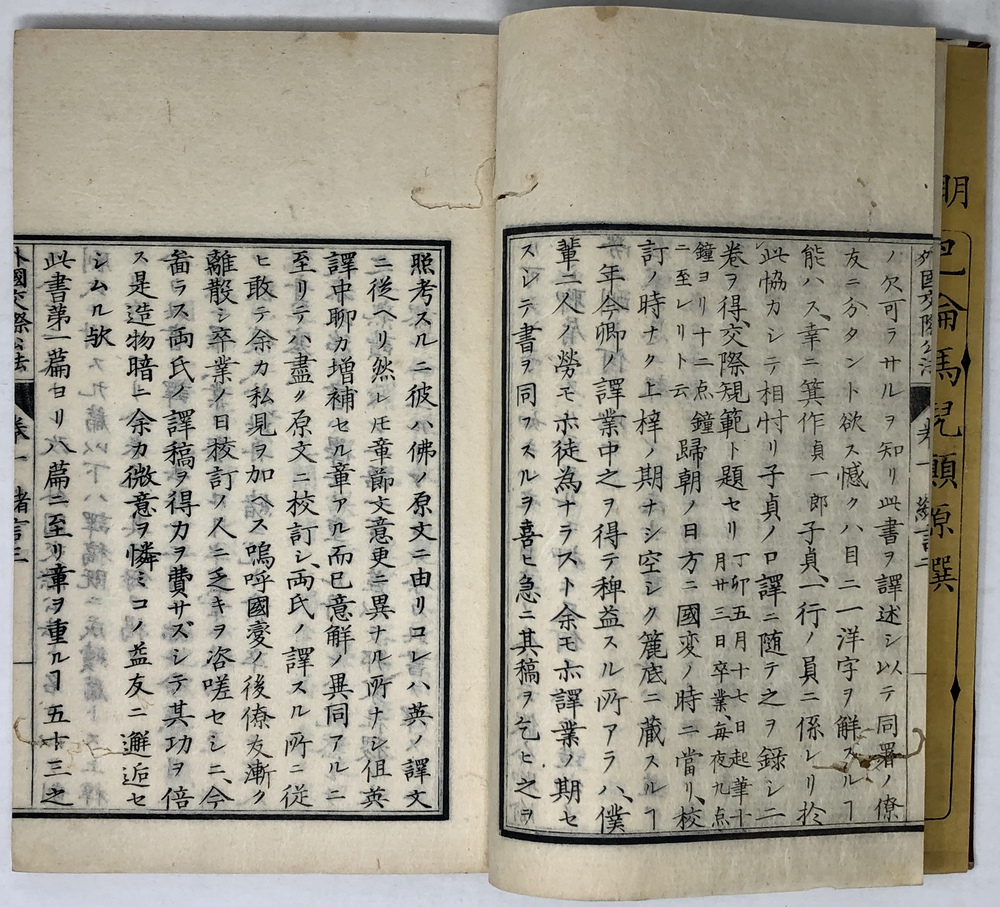 馬児顛原撰
外國交際公法 卷一 緒言二
ノ欠可ラサルヲ知リ此書ヲ譯述シ以テ同署ノ僚
友ニ分タント欲ス憾クハ目ニ一洋字ヲ解スルヿ
能ハス、幸ニ箕作貞一郎子貞、一行ノ員ニ係レリ於
此協力シテ相忖リ子貞ノ口譯ニ随テ之ヲ録シ二
卷ヲ得、交際規範ト題セリ
丁卯五月十七日起筆十
月廿三日卒業毎夜九点
鐘ヨリ十二点鐘
ニ至レリト云
歸朝ノ日方ニ國変ノ時ニ當リ、校
訂ノ時ナク上梓ノ期ナシ空シク篋底ニ蔵スルヿ
一年今卿ノ譯業中之ヲ得テ稗益スル所アラハ、僕
輩二人ノ勞モ亦徒為ナラスト余モ亦譯業ノ期セ
スシテ書ヲ同フスルヲ喜ヒ急ニ其稿ヲ乞ヒ之ヲ
照考スルニ彼ハ佛ノ原文ニ由リコレハ英ノ譯文
ニ從ヘリ然レ𪜈章節文意更ニ異ナル所ナシ但英
譯中聊カ増補セル章アル而已意解ノ異同アルニ
至リテハ盡ク原文ニ校訂シ、両氏ノ譯スル所ニ従
ヒ敢テ余カ私見ヲ加ヘス嗚呼國変ノ後僚友漸ク
離散シ卒業ノ日校訂ノ人ニ乏キヲ咨嗟セシニ、今
啻ラス両氏ノ譯稿ヲ得力ヲ費サズシテ其功ヲ倍
ス是造物暗ニ余カ微意ヲ憐ミコノ益友ニ邂逅セ
シムル歟
此書第一篇ヨリ八篇ニ至リ章ヲ重ルヿ五十三之
外國交際公法 卷一 緒言三